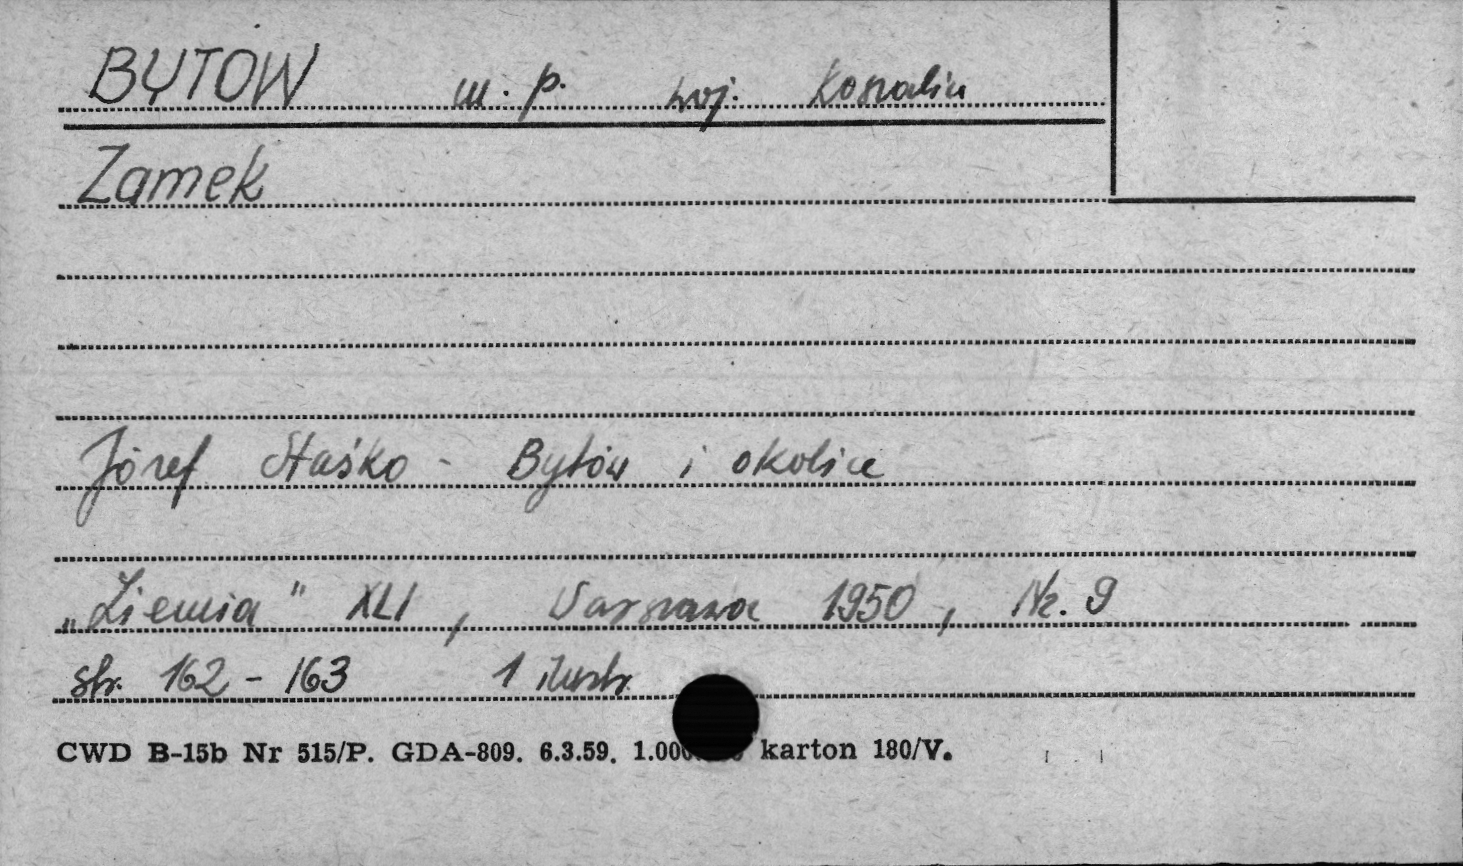 BYTOW m. p. woj. Koszalin
Zamek
Józef Staśko - Bytów i okolice
„Ziemia" XLI, Warszawa 1950, Nr. 9
str. 162 - 163 1 ilustr.
CWD B-15b Nr 515/P. GDA-809. 6.3.59. karton 180/V.